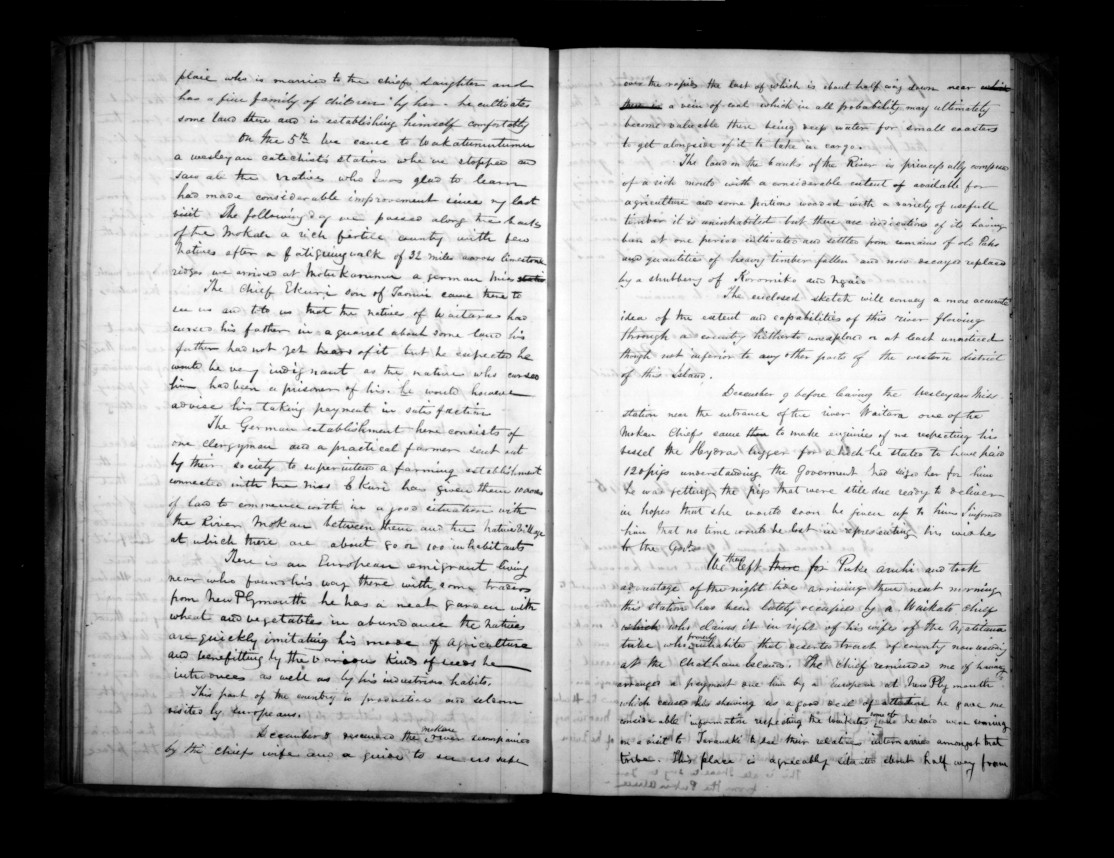 place who is married to the chiefs daughter and
has a fine family of children by her - he cultivates
some land there and is establishing himself comfortably
On the 5th we came to Wakatumutumu
a wesleyan catechists station where we stopped and
saw all the natives who I was glad to learn
had made considerable improvement since my last
visit The following day we passed along the banks
of the Mokau a rich fertile country with few
Natives after a fatiguing walk of 32 miles across limestone
ridges we arrived at Motukaramu a german miss station
The Chief Ekuri son of Taonui came there to
see us and told us that the natives of Waitara had
cursed his father in a quarrel about some land his
father had not yet heard of it but he expected he
would be very indignant as the native who cursed
him had been a prisoner of his. he would however
advise his taking payment in satisfaction
The German establishment here consists of
one clergyman and a practical farmer sent out
by their society to superintend a farming establishment
connected with the miss Ekuri has given them 10 acres
of land to commence with in a good situation with
the River Mokau between them and the native village
at which there are about 80 or 100 inhabitants
There is an European emigrant living
near who found his way there with some traders
from New Plymouth he has a neat garden with
wheat and vegetables in abundance the natives
are quickly imitating his mode of agriculture
and benefitting by the various kinds of seeds he
introduces as well as by his industrious habits.
This part of the country is productive and seldom
visited by Europeans.
December 8 descended the Mokau river accompanied
by the chiefs wife and a guide to see us safe
over the rapids the last of which is about half way down near which
there is a vein of coal which in all probability may ultimately
become valuable there being deep water for small coasters
to get alongside of it to take in cargo.
The land on the banks of the River is principally composed
of a rich mould with a considerable extent of available for
agriculture and some portions wooded with a variety of usefull
timber it is uninhabited but there are indications of its having
been at one period cultivated and settled from remains of old Pahs
and quantities of heavy timber fallen and now decayed replaced
by a shrubbery of Koromiko and Ngaio
The enclosed sketch will convey a more accurate
idea of the extent and capabilities of this river flowing
through a country hitherto unexplored or at least unnoticed
though not inferior to any other parts of the western district
of this Island.
December 9 before leaving the Wesleyan Miss
station near the entrance of the river Waitara one of the
Mokau Chiefs came there to make enquiries of me respecting his
vessel the Hydras lugger for which he stated to have paid
120 pigs understanding the Government had seized her for him
he was getting the pigs that were still due ready to deliver
in hopes that she would soon be given up to him I informed
him that no time would be lost in representing his wishes
to the Govr.
We then left there for Puke aruhe and took
advantage of the night tide arriving there next morning
this station has been lately occupied by a Waikato Chief
which who claims it in right of his wife of the Ngatitama
tribe who formerly inhabited that deserted tract of country now residing
at the Chatham Islands. The Chief reminded me of having
arranged a payment due him by a European at New Plymouth
which caused his shewing us a good deal of attention he gave me
considerable information respecting the Waikatos some of whom he said were coming
on a visit to Taranaki to see their relatives intermarried amongst that
tribe. This place is agreeably situated about half way from